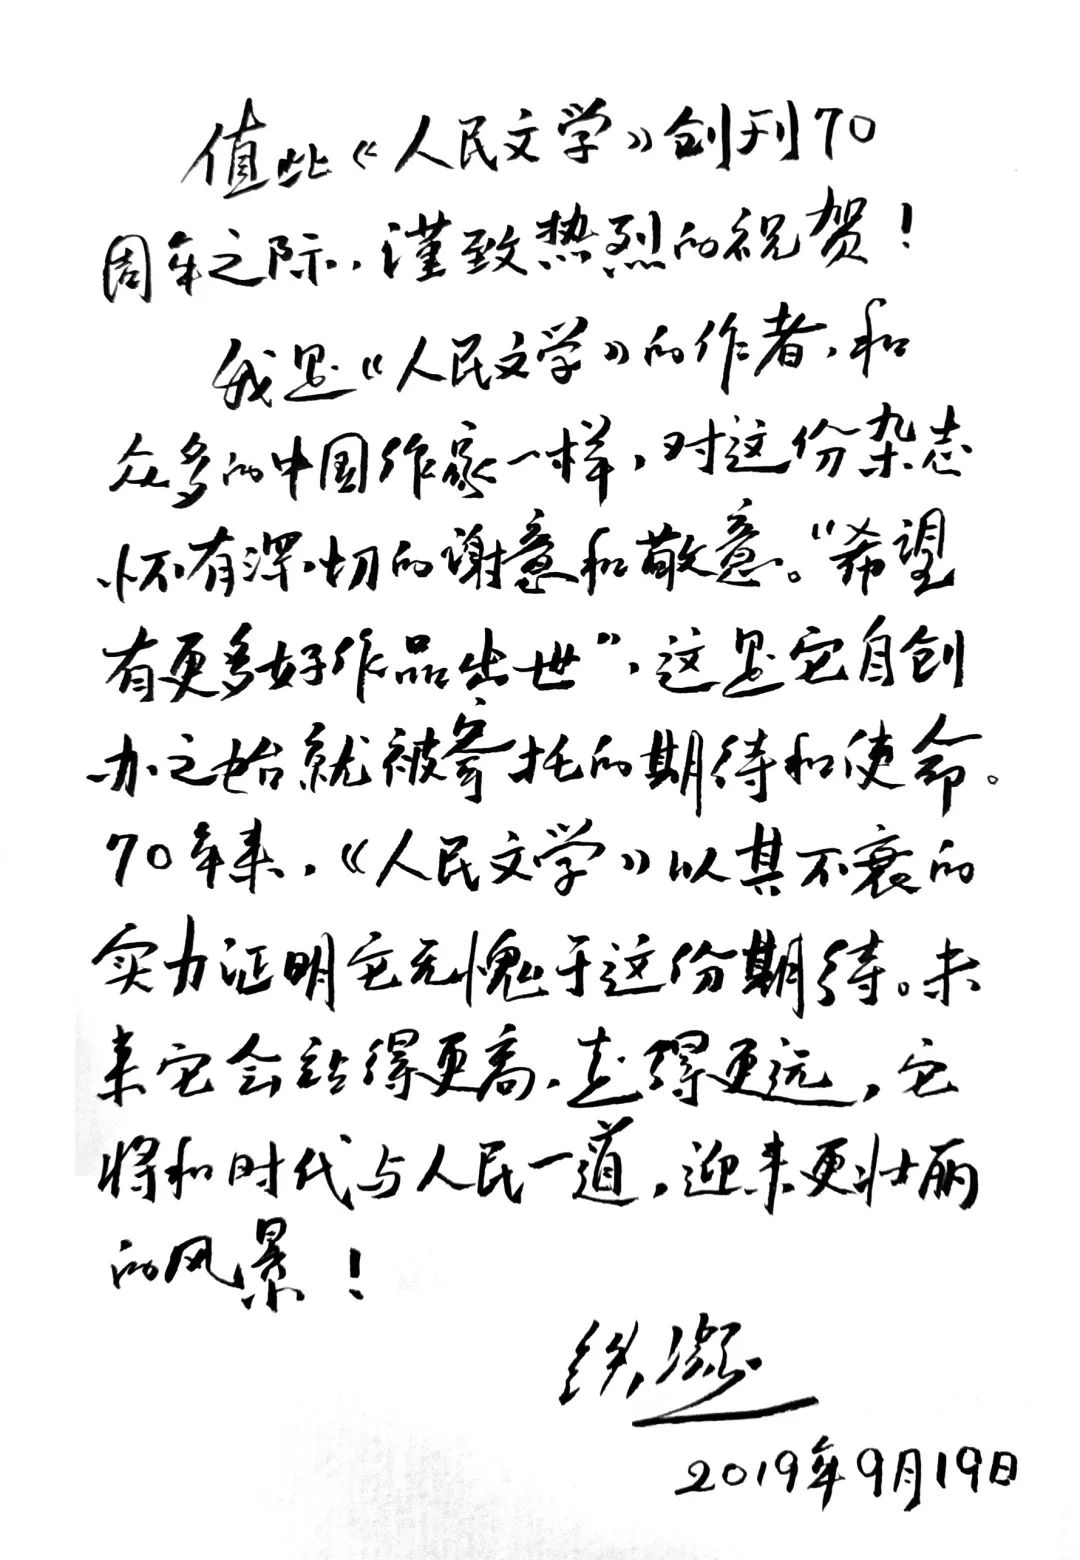 值此《人民文学》创刊70
周年之际，谨致热烈的祝贺！
我是《人民文学》的作者，和
众多的中国作家一样，对这份杂志
怀有深切的谢意和敬意。“希望
有更多好作品出世”，这是它自创
办之始就被寄托的期待和使命。
70年来，《人民文学》以其不衰的
实力证明它无愧于这份期待。未
来它会站得更高，走得更远，它
将和时代与人民一道，迎来更壮丽
的风景！
铁凝
2019年9月19日